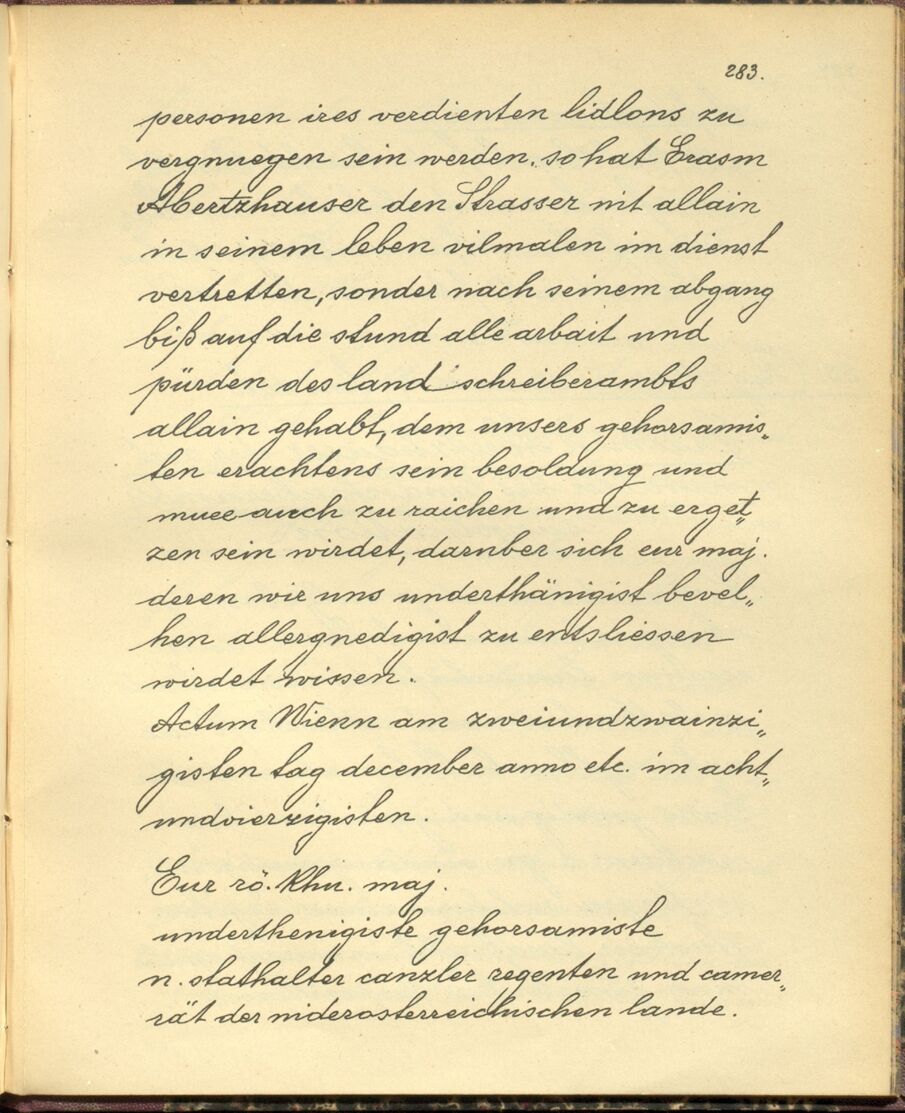 283.
personen ires verdienten lidlons zu
vergnuegen sein werden, so hat Erasm
Abertzhauser den Strasser nit allain
in seinem leben vilmalen im dienst
vertretten, sonder nach seinem abgang
biß auf die stund alle arbait und
pürden des land schreiberambts
allain gehabt, dem unsers gehorsamis„
ten erachtens sein besoldung und
muee auch zu raichen und zu erget„
zen sein wirdet, darüber sich eur maj.
deren wir uns underthänigist bevel„
hen allergnedigist zu entsliessen
wirdet wissen.
Actum Wienn am zweiundzwainzi„
gisten tag december anno etc. im acht„
undvierzigisten.
Eur rö. khu. maj.
underthenigiste gehorsamiste
n. stathalter canzler regenten und camer„
rät der niderosterreichischen lande.